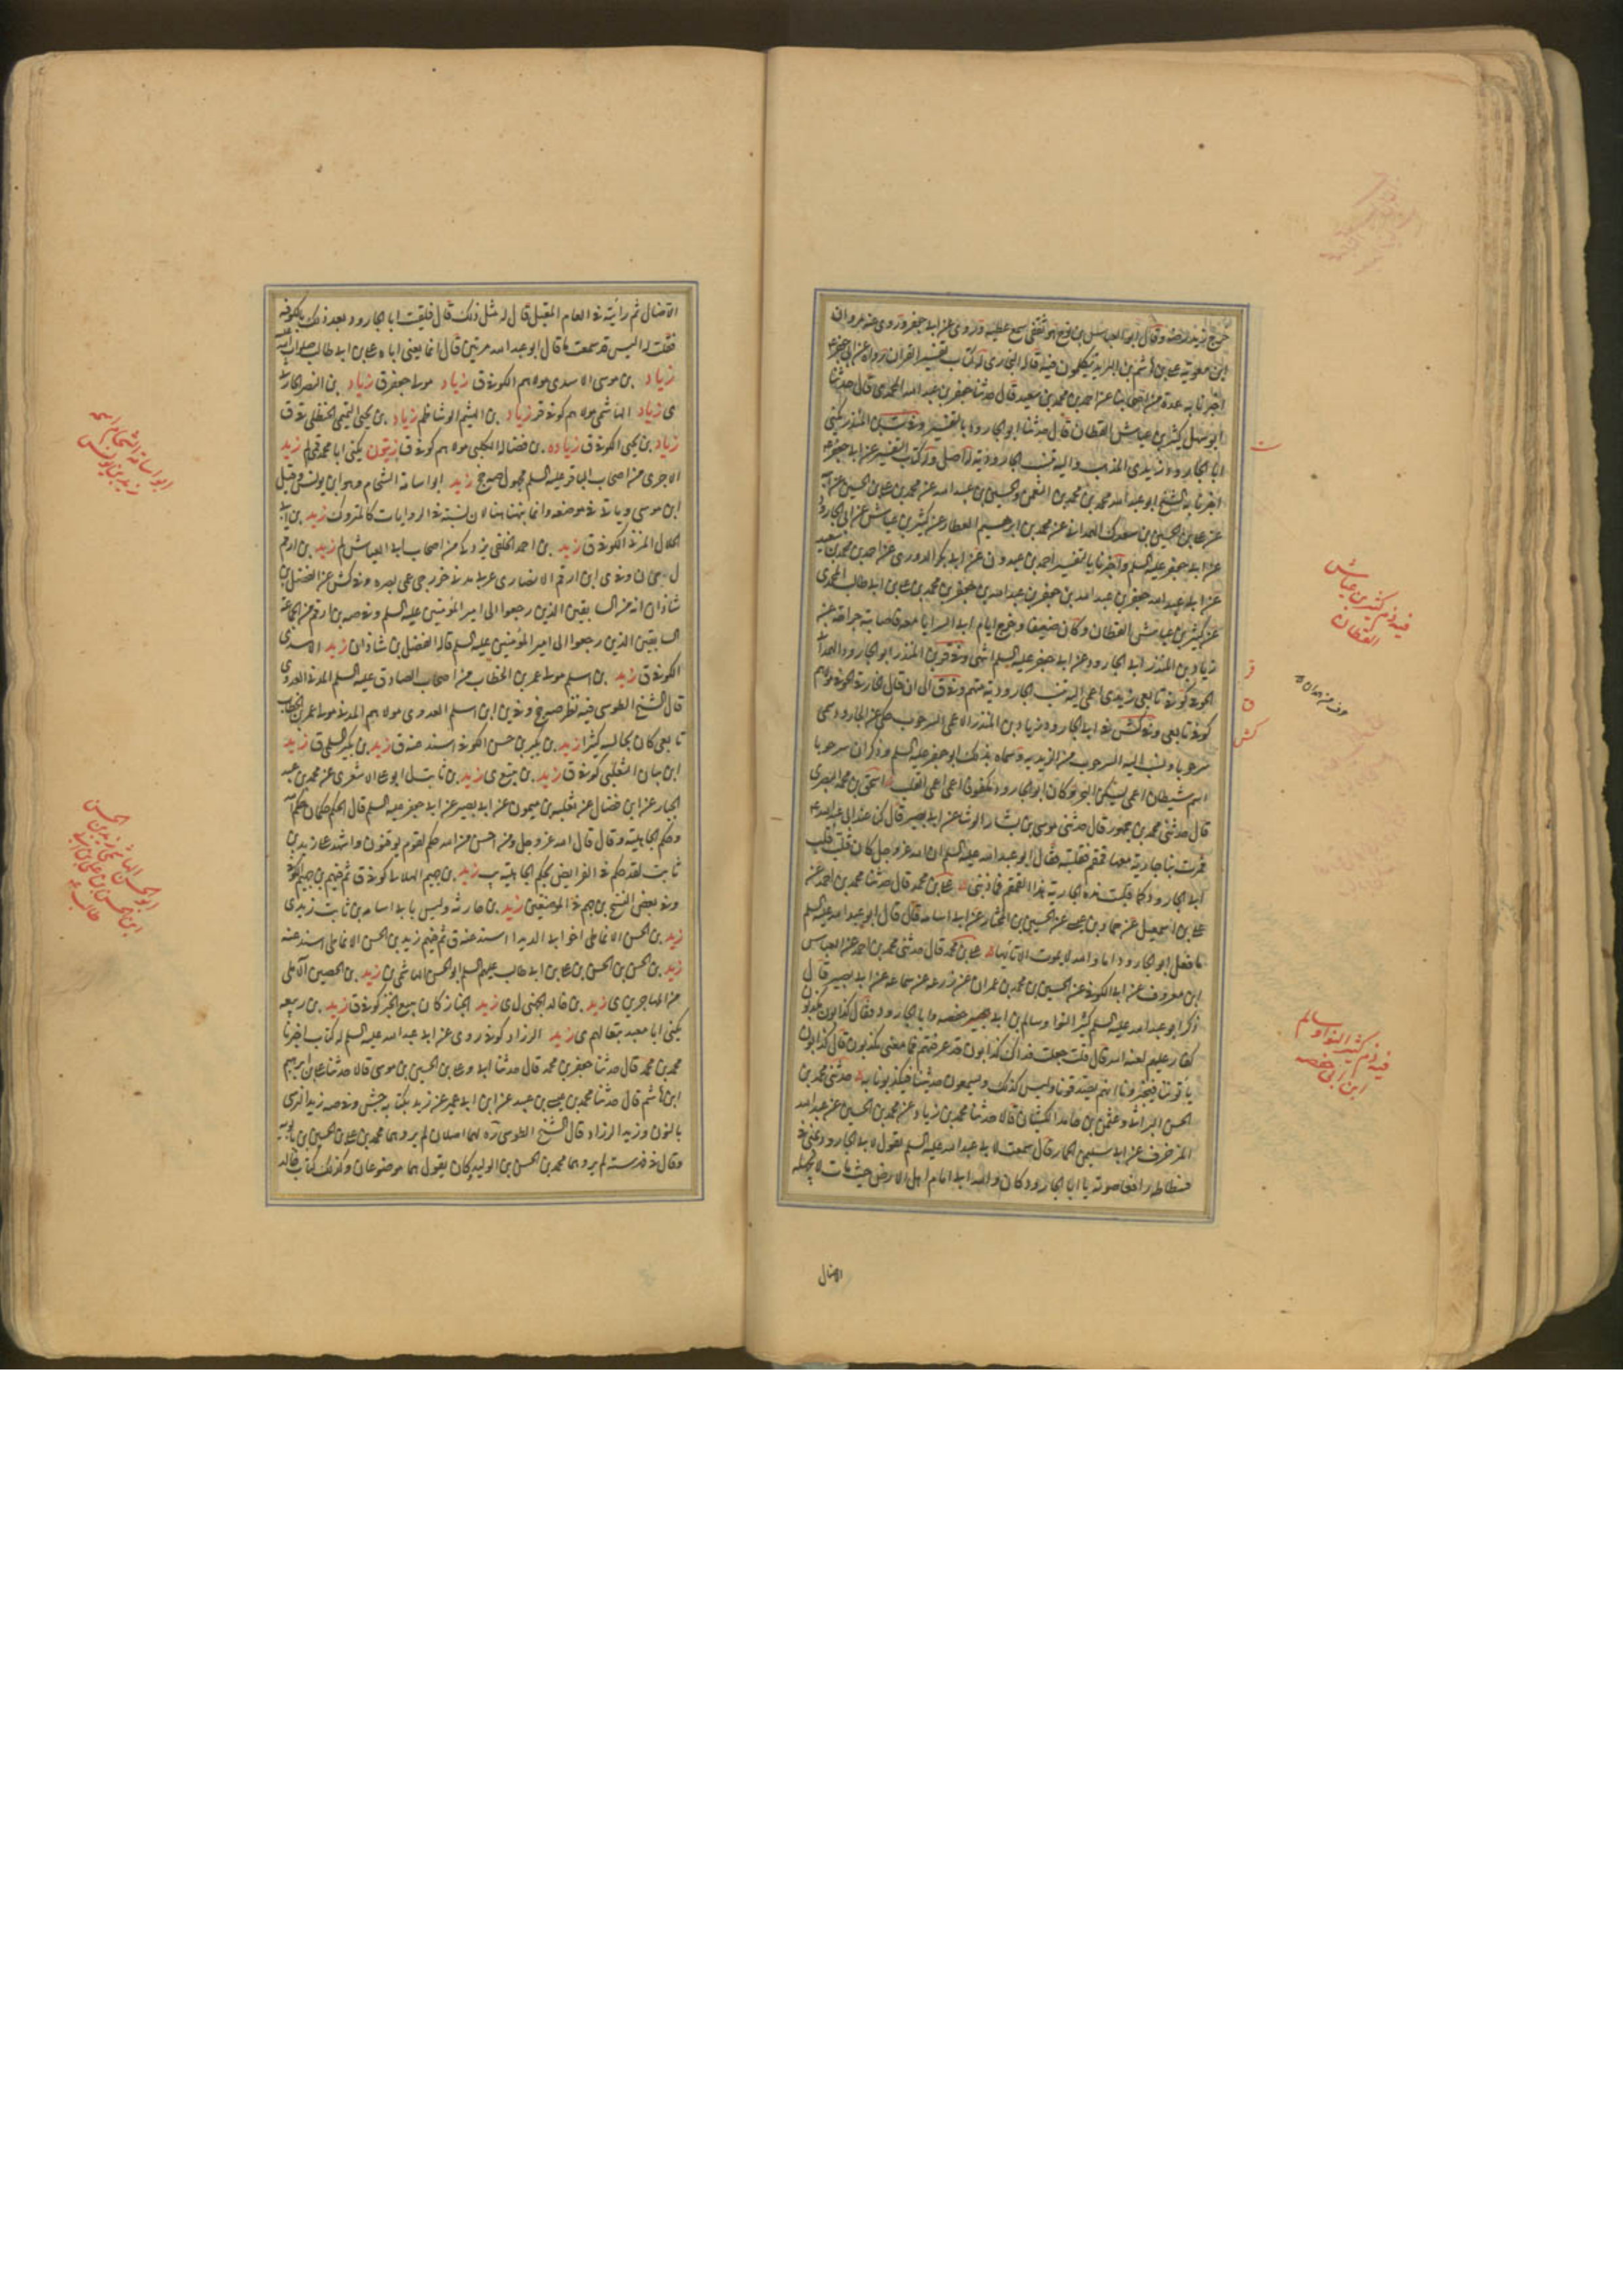 خرج زيد رضه وقال ابو العباس بن نوح هو ثقفي سمع عطيه وروى عن ابي جعفر وروى عنه مروان
ابن معويه علي بن هاشم بن البريد يتكلمون فيه قاله البخاري له كتاب تفسير القران رواه عن ابي جعفر ع
اخبرنا به عدة من اصحابنا عن احمد بن محمد بن سعيد قال حدثنا جعفر بن عبد الله المحمدي قال حدثنا
ابو سهل كثير بن عياش القطان قال حدثنا ابو الجارود بالتفسير وفي ست بن المنذر يكنى
ابا الجارود زيدي المذهب واليه تنسب الجارودية له اصل وله كتاب التفسير عن ابي جعفر ع
اخبرنا به الشيخ ابو عبد الله محمد بن محمد بن النعمن والحسين بن عبيد الله عن محمد بن علي بن الحسين عن ابيه
عن علي بن الحسين بن سعدك الهمداني عن محمد بن ابرهيم القطان عن كثير بن عياش عن ابي الجارود
عن ابي جعفر عليه السلم واخبرنا بالتفسير احمد بن عبدون عن ابي بكر الدوري عن احمد بن محمد بن سعيد
عن ابي عبد الله جعفر بن عبد الله بن جعفر بن عبد الله بن جعفر بن محمد بن علي بن ابي طالب المحمدي
عن كثير بن عياش القطان وكان ضعيفا وخرج ايام ابي السرايا معه فاصابته جراحة عن
زياد بن المنذر ابي الجارود عن ابي جعفر عليه السلم انتهى وفي قر بن المنذر ابو الجارود الهمداني
الحوفي كوفي تابعي زيدي اعمى اليه تنسب الجارودية منهم وفي ق الى ان قال الخارفي الحوفي مولاهم
كوفي تابعي وفي كش في ابي الجارود زياد بن المنذر الاعمى السرحوب حكى عن الجارود سمى
سرحوبا ونسب اليه السرحوب من الزيدية وسماه بذلك ابو جعفر عليه السلم وذكر ان سرحوبا
اسم شيطان اعمى يسكن البحر وكان ابو الجارود مكفوفا اعمى اعمى القلب اسحق بن محمد البصري
قال حدثني محمد بن جمهور قال حدثني موسى بن بشار الوشا عن ابي بصير قال كنا عند ابي عبد الله ع
فمرت بنا جارية معها قمقم فقلبته فقال ابو عبد الله عليه السلم ان الله عز وجل كان قلب قلب
ابي الجارود كما قلبت هذه الجارية هذا القمقم فما ذنبي علي بن محمد قال حدثنا محمد بن احمد عن
علي بن اسمعيل عن حماد بن عيسى عن الحسين بن المختار عن ابي اسامه قال قال ابو عبد الله عليه السلم
ما فعل ابو الجارود اما والله لا يموت الا تايها علي بن محمد قال حدثني محمد بن احمد عن العباس
ابن معروف عن ابي القسم الكوفي عن الحسين بن محمد بن عمران عن زرعه عن سماعه عن ابي بصير قال
ذكر ابو عبد الله عليه السلم كثير النوا وسالم بن ابي حفصه وابا الجارود فقال كذابون مكذبون
كفار عليهم لعنة الله قال قلت جعلت فداك كذابون قد عرفتهم فما معنى مكذبون قال كذابون
ياتوننا فيخبروننا انهم يصدقونا وليس كذلك ويسمعون حديثنا فيكذبون به حدثني محمد بن
الحسن البراثي وعثمن بن حامد الكشيان قالا حدثنا محمد بن زياد عن محمد بن الحسين عن عبد الله
المزخرف عن ابي سليمن الحمار قال سمعت ابا عبد الله عليه السلم يقول لابي الجارود بمنى في
فسطاطه رافعا صوته يا ابا الجارود كان والله ابي امام اهل الارض حيث مات لا يجهله
الا ضال
ت
فيه ذم كثير بن عياش
القطان
ر
ن
كش
فيه ذم كثير النوا وسالم
ابن ابي حفصه
الا ضال ثم رايته في العام المقبل قال له مثل ذلك قال فلقيت ابا الجارود بعد ذلك بالكوفه
فقلت له اليس قد سمعت ما قال ابو عبد الله مرتين قال انما يعني اباه علي بن ابي طالب صلوات الله عليه
زياد بن موسى الاسدي مولاهم الكوفي ق زياد مولى جعفر ق زياد بن النضر الحارثي
ى زياد الهاشمي مولاهم كوفي قر زياد بن الهيثم الوشا ظم زياد بن يحيى التميمي الحنظلي ق
زياد بن يحيى الكوفي ق زياده بن فضاله الكلبي مولاهم كوفي ق زيتون يكنى ابا محمد قمي لم زيد
الاجري من اصحاب الباقر عليه السلم مجهول صح زيد ابو اسامه الشحام وهو ابن يونس وقيل
ابن موسى وياتي في موضعه وانما نبهنا هنا لان نسبته في الروايات كالمتروك زيد بن ابي
الحلال المزني الكوفي ق زيد بن احمد الخلقي يزدى من اصحاب العياشي لم زيد بن ارقم
ل ى ن وفي ى ابن ارقم الانصاري عربي مدني خزرجي عمي بصره وفي كش عن الفضل بن
شاذان انه من السابقين الذين رجعوا الى امير المؤمنين عليه السلم وفي صه بن ارقم من الجماعة
السابقين الذين رجعوا الى امير المؤمنين عليه السلم قاله الفضل بن شاذان زيد الاسدي
الكوفي ق زيد بن اسلم مولى عمر بن الخطاب من اصحاب الصادق عليه السلم المدني العدوي
قال الشيخ الطوسي فيه نظر صح وفي ين ابن اسلم العدوي مولاهم المدني مولى عمر بن الخطاب
تابعي كان يجالسه كثيرا زيد بن بكر بن حسن الكوفي اسند عنه ق زيد بن بكير السلمي ق زيد
ابن بنان الثعلبي كوفي ق زيد بن تبيع ى زيد بن ثابت ل ابو علي الاشعري عن محمد بن عبد
الجبار عن ابن فضال عن ثعلبه بن ميمون عن ابي بصير عن ابي جعفر عليه السلم قال الحكم حكمان حكم الله
وحكم الجاهلية وقال قال الله عز وجل ومن احسن من الله حكما لقوم يوقنون واشهد على زيد بن
ثابت لقد حكم في الفرايض بحكم الجاهلية يب زيد بن جهيم الهلالي كوفي ق ثم فيهم بن جهيم الكوفي
وفي بعض النسخ بن جهم في الموضعين زيد بن حارثه وليس بابي اسامه بن ثابت زيدى
زيد بن الحسن الانماطي اخو ابي الديدا اسند عنه ق ثم فيهم زيد بن الحسن الانماطي اسند عنه
زيد بن الحسن بن الحسن بن علي بن ابي طالب عليهم السلم ابو الحسن الهاشمي ين زيد بن الحصين الاسلمي
من المهاجرين ى زيد بن خالد الجهني ل ى زيد الخباز كان يبيع الخبز كوفي ق زيد بن ربيعه
يكنى ابا معبد يقال لهم ى زيد الزراد كوفي روى عن ابي عبد الله عليه السلم له كتاب اخبرنا
محمد بن محمد قال حدثنا جعفر بن محمد قال حدثنا ابي وعلي بن الحسين بن موسى قالا حدثنا علي بن ابرهيم
ابن هاشم قال حدثنا محمد بن عيسى بن عبيد عن ابن ابي عمير عن زيد بكتابه جش وفي صه زيد النرسي
بالنون وزيد الزراد قال الشيخ الطوسي ره لهما اصلان لم يروهما محمد بن علي بن الحسين بن بابويه
وقال في فهرسته لم يروهما محمد بن الحسن بن الوليد وكان يقول هما موضوعان وكذلك كتاب خالد
ابو اسامه الشحام اسمه
زيد بن يونس
ابو الحسن الهاشمي زيد بن الحسن
ابن الحسن بن علي بن ابي
طالب ع